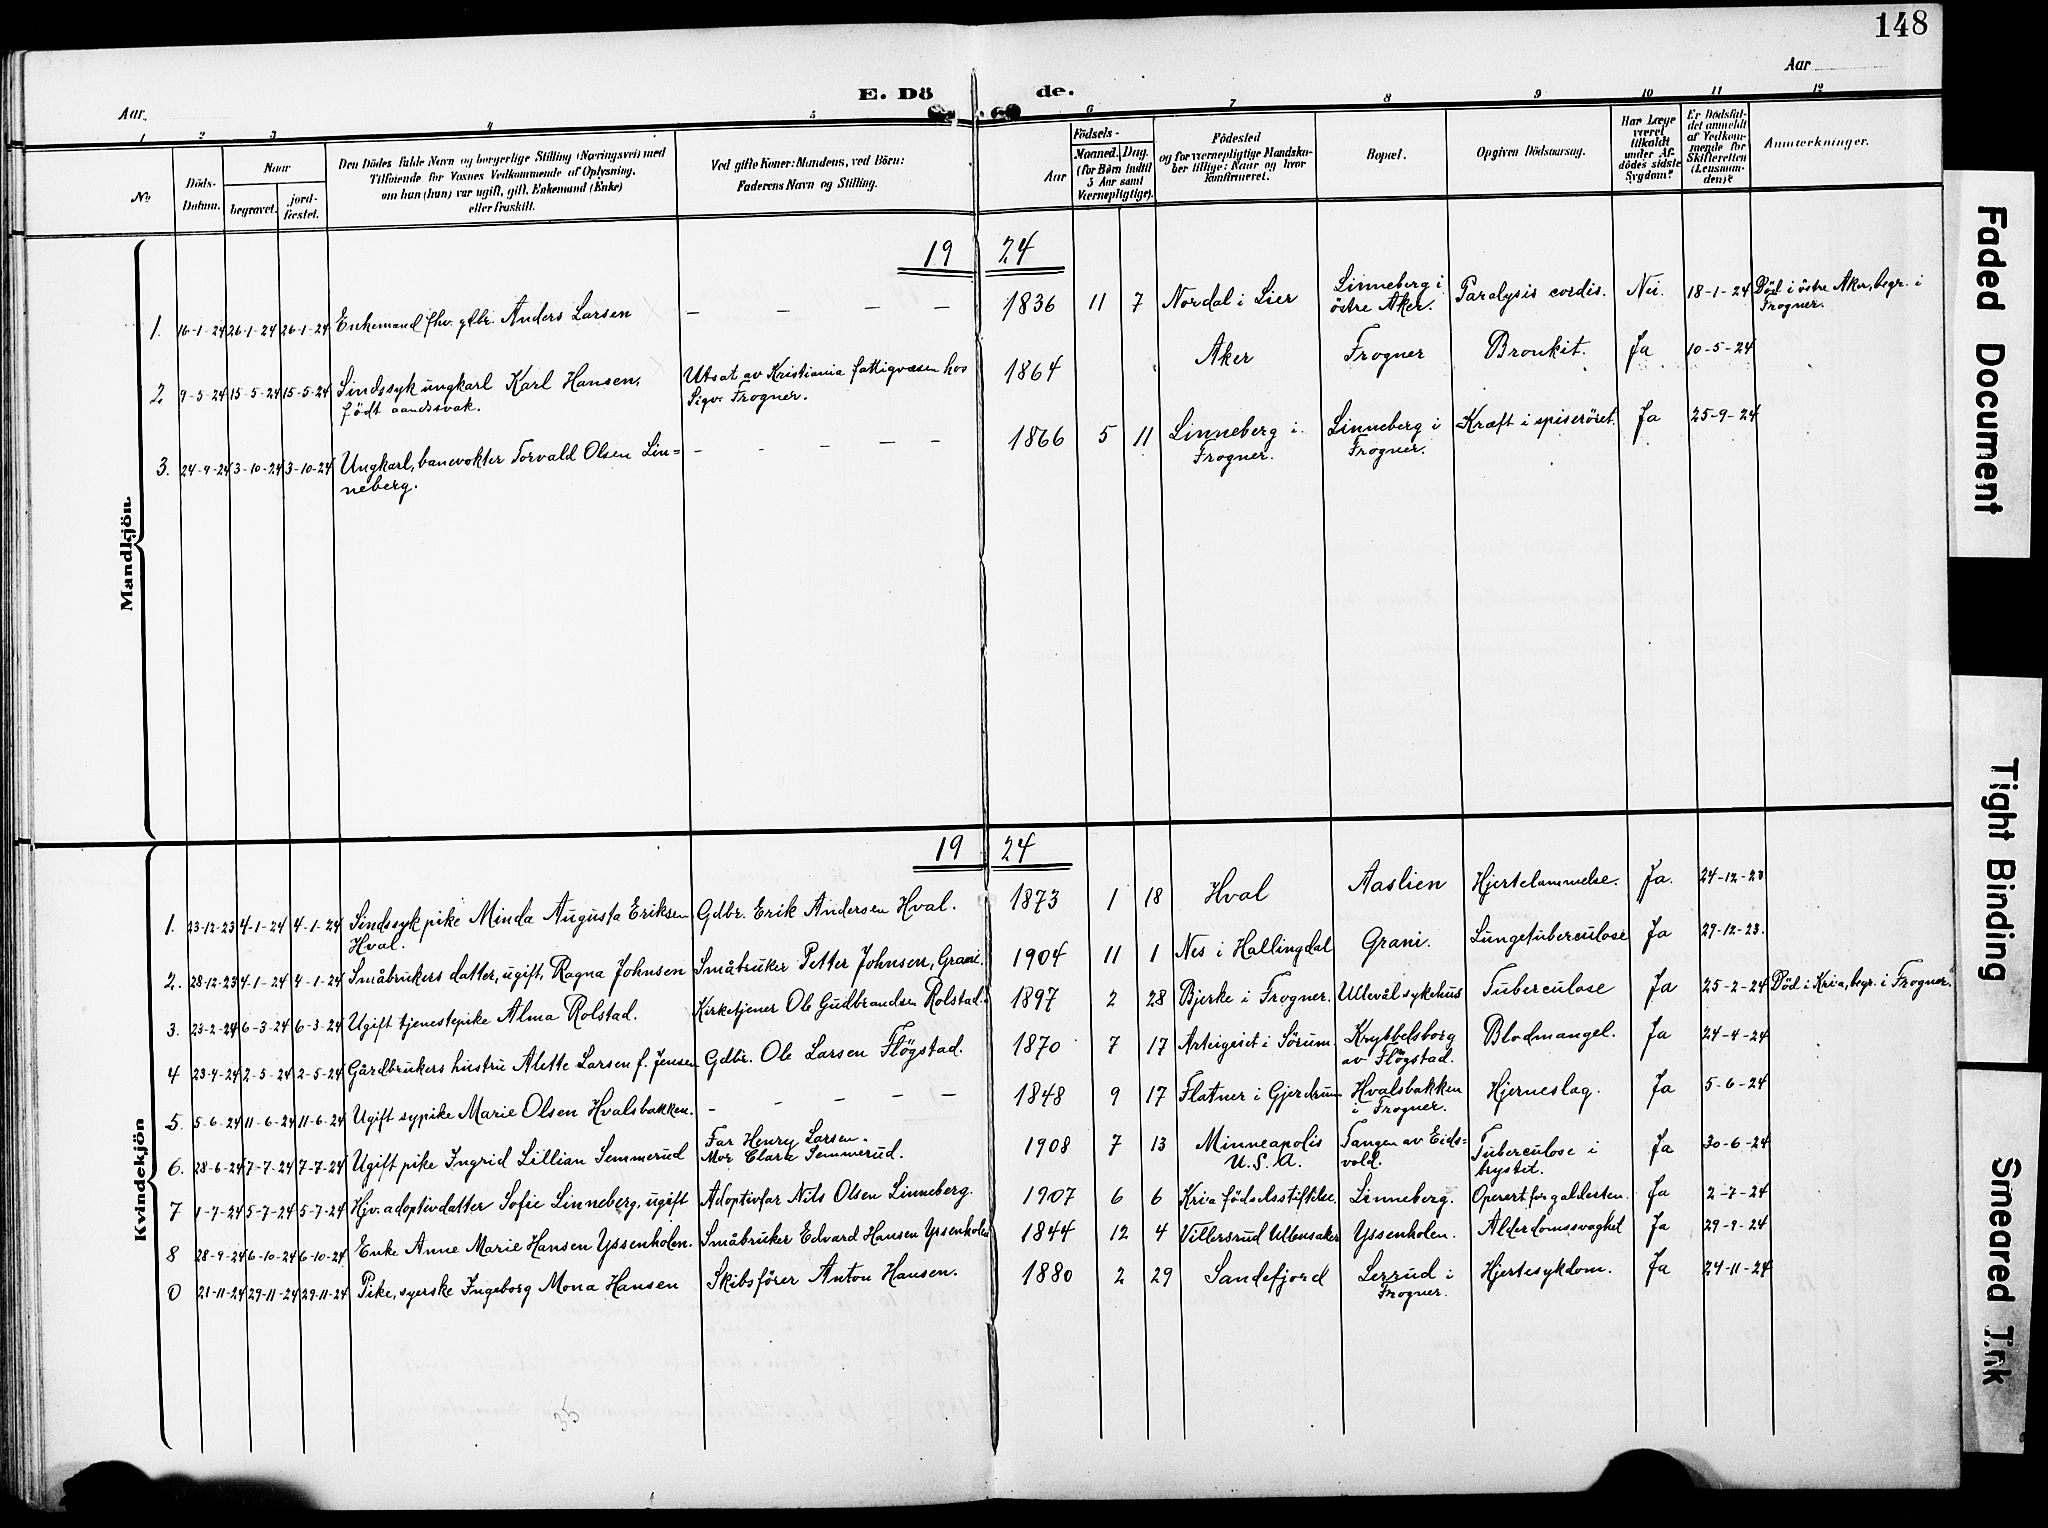 148
Aar
Aar
E. Dö de.
1 2 3 4 5 6 7 8 9 10 11 12
No.
Döds-Datum.
Naar
begravet.
jord-fæstet.
Den Dödes fulde Navn og borgerlige Stilling (Næringsvei) med
Tilföiende for Voxnes Vedkommende af Oplysning,
om han (hun) var ugift, gift, Enkemand (Enke)
eller fraskilt.
Ved gifte Koner: Mandens, ved Börn:
Faderens Navn og Stilling.
Födsels-
Aar
Maaned. Dag.
(for Børn indtil
5 Aar samt
Værnepligtige).
Födested
og for værnepligtige Mandska-
ber tillige: Naar og hvor
konfirmeret.
Bopæl.
Opgiven Dödsaarsag.
Har Læge
været
tilkaldt
under Af-
dödes sidste
Sygdom?
Er Dödsfal-
det anmeldt
af Vedkom-
mende for
Skifteretten
(Lensman-
den)?
Anmærkninger.
Mandkjön.
19 24
1. 16-1-24 26-1-24 26-1-24 Enkemand fhv. gdbr. Anders Larsen – – – – – 1836 11 7 Nordal i Lier Linneberg i östre Aker. Paralysis cordis. Nei. 18-1-24 Död i östre Aker, begr. i Frogner.
2 9-5-24 15-5-24 15-5-24 Sindssyk ungkarl Karl Hansen, Utsat av Kristiania fattigvæsen hos 1864 Aker Frogner Bronkit. Ja 10-5-24
født aandssvak. Sigv. Frogner.
3. 24-9-24 3-10-24 3-10-24 Ungkarl, banevokter Torvald Olsen Lin= – – – – – 1866 5 11 Linneberg i Frogner. Linneberg i Frogner. Kræft i spiseröret. Ja 25-9-24
neberg.
Kvindekjön
19 24
1. 23-12-23 4-1-24 4-1-24 Sindssyk pike Minda Augusta Eriksen Gdbr. Erik Andersen Hval. 1873 1 18 Hval Aaslien Hjertelammelse. Ja. 24-12-23
Hval.
2. 28-12-23 4-1-24 4-1-24 Småbrukers datter, ugift, Ragna Johnsen Småbruker Petter Johnsen, Grani. 1904 11 1 Nes i Hallingdal Grani. Lungetuberculose Ja 29-12-23.
3. 23-2-24 6-3-24 6-3-24 Ugift tjenestepike Alma Rolstad. Kirketjener Ole Gudbrandsen Rolstad. 1897 2 28 Bjerke i Frogner. Ullevål sykehus Tuberculose Ja 25-2-24 Död i Kria, begr. i Frogner.
4 23-4-24 2-5-24 2-5-24 Gårdbrukers hustru Alette Larsen f. Jensen Gdbr. Ole Larsen Flögstad. 1870 7 17 Arteigeiet i Sörum. Krybbelsborg av Flögstad. Blodmangel. Ja 24-4-24
5. 5-6-24 11-6-24 11-6-24 Ugift sypike Marie Olsen Hvalsbakken. – – – – – 1848 9 17 Flatner i Gjerdrum Hvalsbakken i Frogner. Hjerneslag. Ja 5-6-24
6. 28-6-24 7-7-24 7-7-24 Ugift pike Ingrid Lillian Semmerud Far Henry Larsen. Mor Clara Semmerud. 1908 7 13 Minneapolis U.S.A. Tangen av Eids= vold. Tuberculose i brystet. Ja 30-6-24
7 1-7-24 5-7-24 5-7-24 Hjv. adoptivdatter Sofie Linneberg, ugift Adoptivfar Nils Olsen Linneberg. 1907 6 6 Kria födselsstiftelse. Linneberg. Operert for galdesten. Ja 2-7-24
8 28-9-24 6-10-24 6-10-24 Enke Anne Marie Hansen Yssenholen. Småbruker Edvard Hansen Yssenholen 1844 12 4 Villersrud Ullensaker Yssenholen. Alderdomssvaghet Ja 29-9-24
21-11-24 29-11-24 29-11-24 Pike, syerske Ingeborg Mona Hansen Skibsförer Anton Hansen. 1880 2 29 Sandefjord Lerrud i Frogner. Hjertesykdom. Ja 24-11-24
35
Faded Document
Tight Binding
Smeared Ink